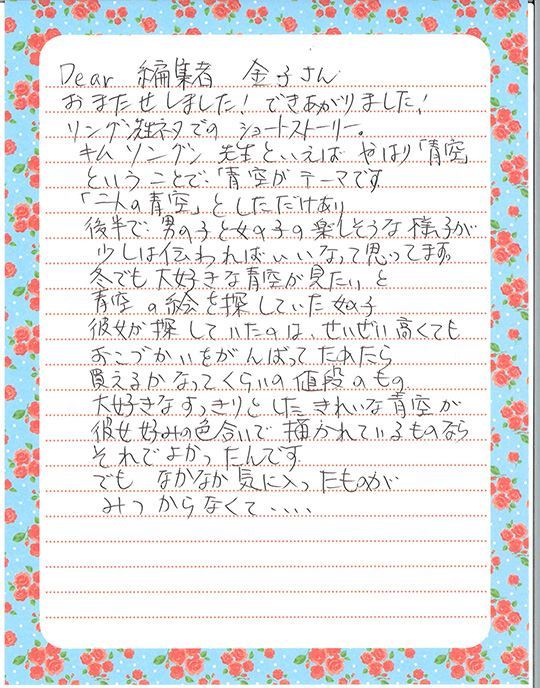 Dear 編集者 金子さん
おまたせしました! できあがりました!
ソングン先生ネタでの ショートストーリー。
キム ソングン 先生といえば やはり「青空」
ということで、「青空が テーマです
「二人の青空」としただけあり
後半で 男の子と女の子の楽しそうな様子が
少しは伝わればいいなって思ってます。
冬でも大好きな青空が見たいと
青空の絵を探していた女の子
彼女が探していたのは、せいぜい高くても
おこづかいをがんばってためたら
買えるかなってくらいの値段のもの
大好きなすっきりとした きれいな青空が
彼女好みの色合いで描かれているものなら
それでよかったんです
でも なかなか気に入ったものが
みつからなくて・・・・